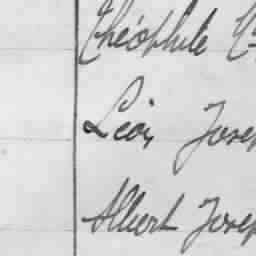 Théophile
Léon Josep
Albert Josep